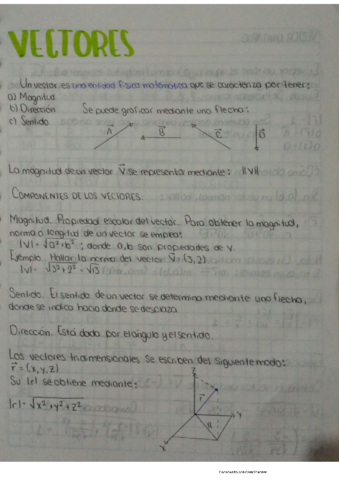 VECTORES
Un vector es una entidad física matemática que se caracteriza por tener:
a) Magnitud
b) Dirección Se puede graficar mediante una flecha:
c) Sentido.
A B C D
La magnitud de un vector V⃗ se representa mediante: ||V||
COMPONENTES DE LOS VECTORES.
Magnitud. Propiedad escalar del vector. Para obtener la magnitud,
norma o longitud de un vector se emplea:
|V| = √a²+b² ; donde a,b son propiedades de v.
Ejemplo. Hallar la norma del vector V⃗ = (3,2).
|V| = √3²+2² = √13
Sentido. El sentido de un vector se determina mediante una flecha,
donde se indica hacia donde se desplaza.
Dirección. Está dado por el ángulo y el sentido.
Los vectores tridimensionales se escriben del siguiente modo:
r⃗ = (x,y,z)
Su |r| se obtiene mediante:
|r| = √x²+y²+z²
z
r
y
x